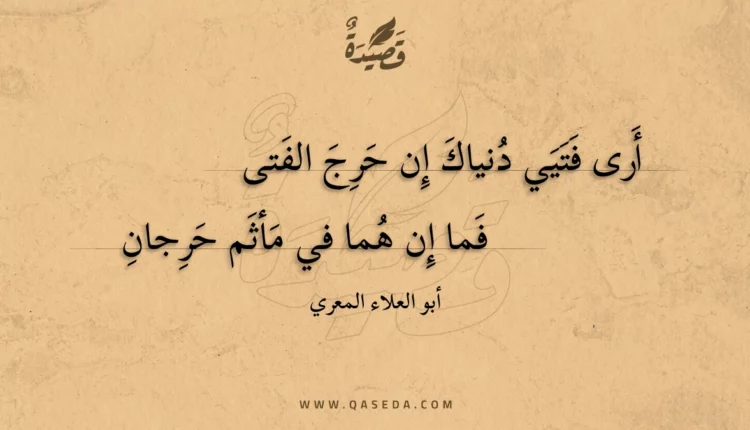 قَصِيدَةٌ
أَرى فَتَيَي دُنياكَ إِن حَرِجَ الفَتى
فَما إِن هُما في مَأثَم حَرِجانِ
أبو العلاء المعري
WWW.QASEDA.COM